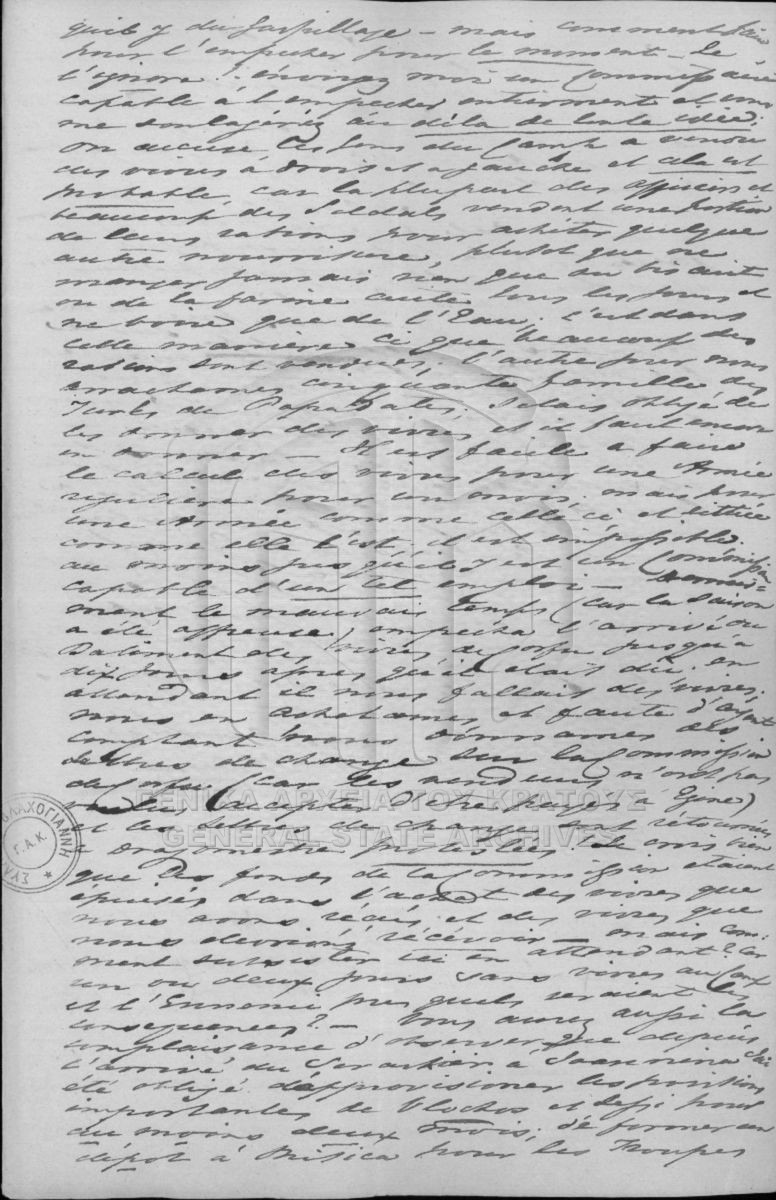 qu'il y du Gaspillage – mais comment faire
pour l'empecher pour le moment – Je
l'ignore! envoyez moi un Commissaire
capable à l'empecher entierment et vous
me soulagérez au dela de toute idée:
on accuse les Gens du Camp a vendre
des vivres à droit et a gauche et cela est
probable, car la plupart des officiers et
beaucoup des Soldats vendent une portion
de leurs rations pour acheter quelque
autre nourriture, plutot que ne
manger jamais rien que du biscuit
ou de la farine cuite tous les jours et
ne boire que de l'Eau: c'est dans
cette maniere ci que beaucoup des
rations sont vendues. l'autre jour nous
cinquante famille des
Turks de Papadates. J'etais obligé de
les donner des vivres et il faut encore
en donner – Il est facile a faire
le calcul des vivres pour une Armée
reguliere pour un mois. mais pour
une Armée comme celle ci et situee
comme elle l'est il est impossible.
au moins jusqu'il y est un Commissaire
capable d'un tel emploi –
ment le mauvais temps (car la saison
a été affreuse) empecha l'arrivé du
Batiment des vivres de Corfu jusqu'a
dix jours apres qu'il etait dû. en
attendant il nous fallait des vivres,
nous en achetames et faute d'argent
comptant nous donnames des
Lettres de change sur la Commission
de Corfu (car les vendeurs n'ont pas
voulus accepter d'etre payés à Egine)
et les lettres de change sont retournés
a Dragomestre protestées. Je crois bien
que les fonds de la Commission etaient
épuisés dans l'achat des vivres que
nous avons récus et des vivres que
nous devrions récévoir – mais com:
ment subsister ici en attendant? Car
un ou deux jours sans vivres au Camp
et l'Ennemi pres quels seraient les
consequences? – Vous aurez aussi la
complaisance d'observer que depuis
l'arrivé du Seraskier à Joannina j'ai
été obligé d'approvisioner les positions
importantes de Vlochos et pour
au moins deux mois; de former un
dépot à Mitica pour les Troupes
ΓΕΝΙΚΑ ΑΡΧΕΙΑ ΤΟΥ ΚΡΑΤΟΥΣ
GENERAL STATE ARCHIVES
ΒΛΑΧΟΓΙΑΝΝΗ
Γ.Α.Κ.
ΣΥΛΛ